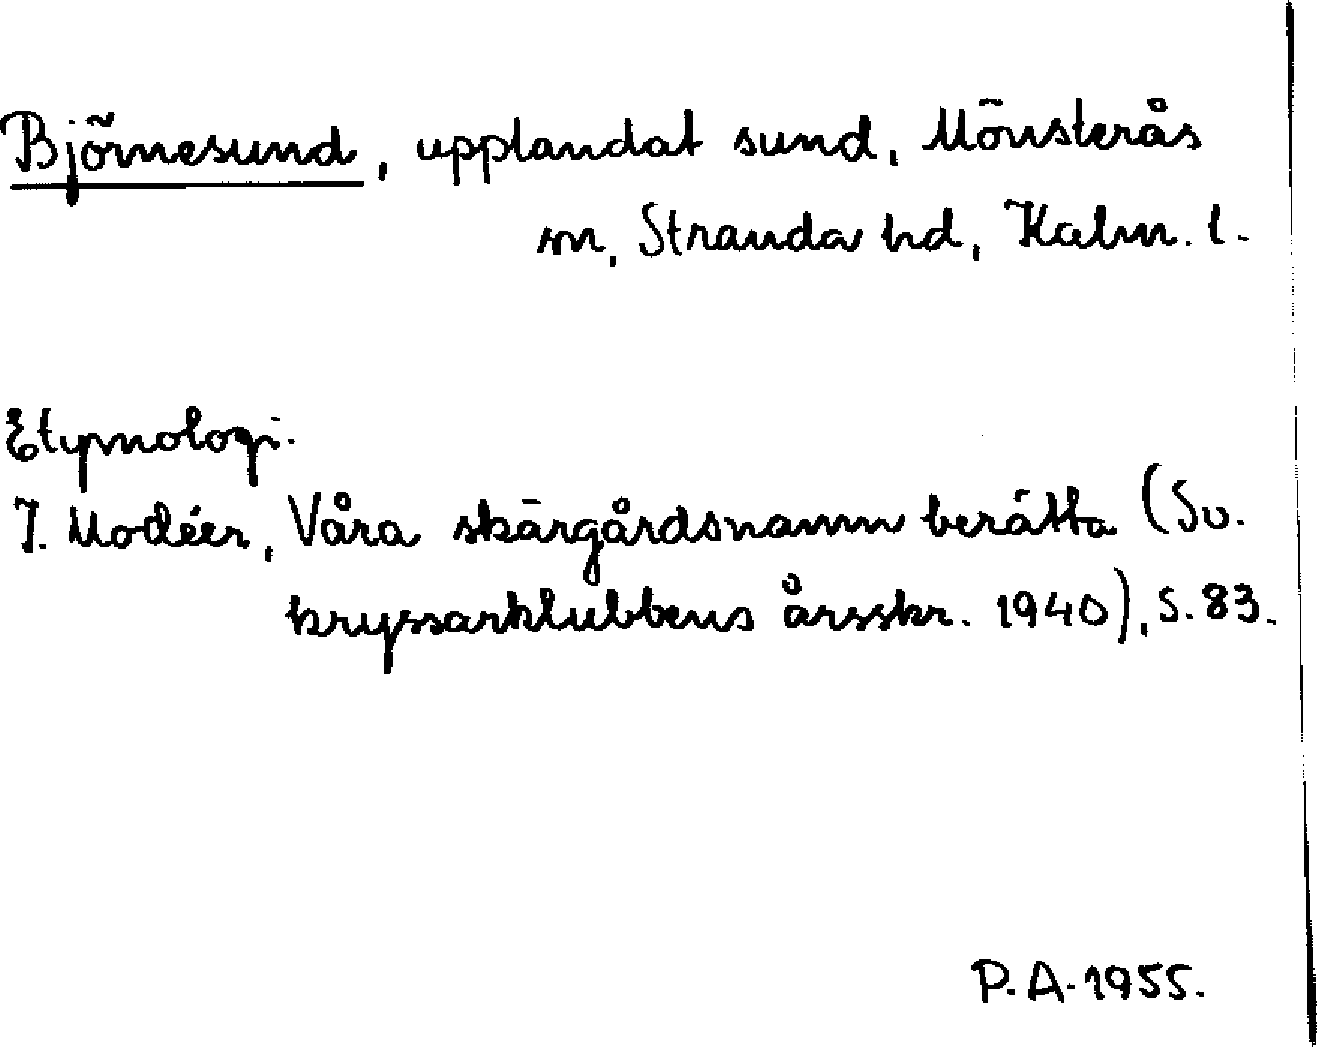 Björnesund, upplandat sund, Mönsterås
sn, Stranda hd, Kalm. l.
Etymologi.
I. Modéer, Våra skärgårdsnamn berätta (Sv.
kryssarklubbens årsskr. 1940), s. 83.
P.A. 1955.